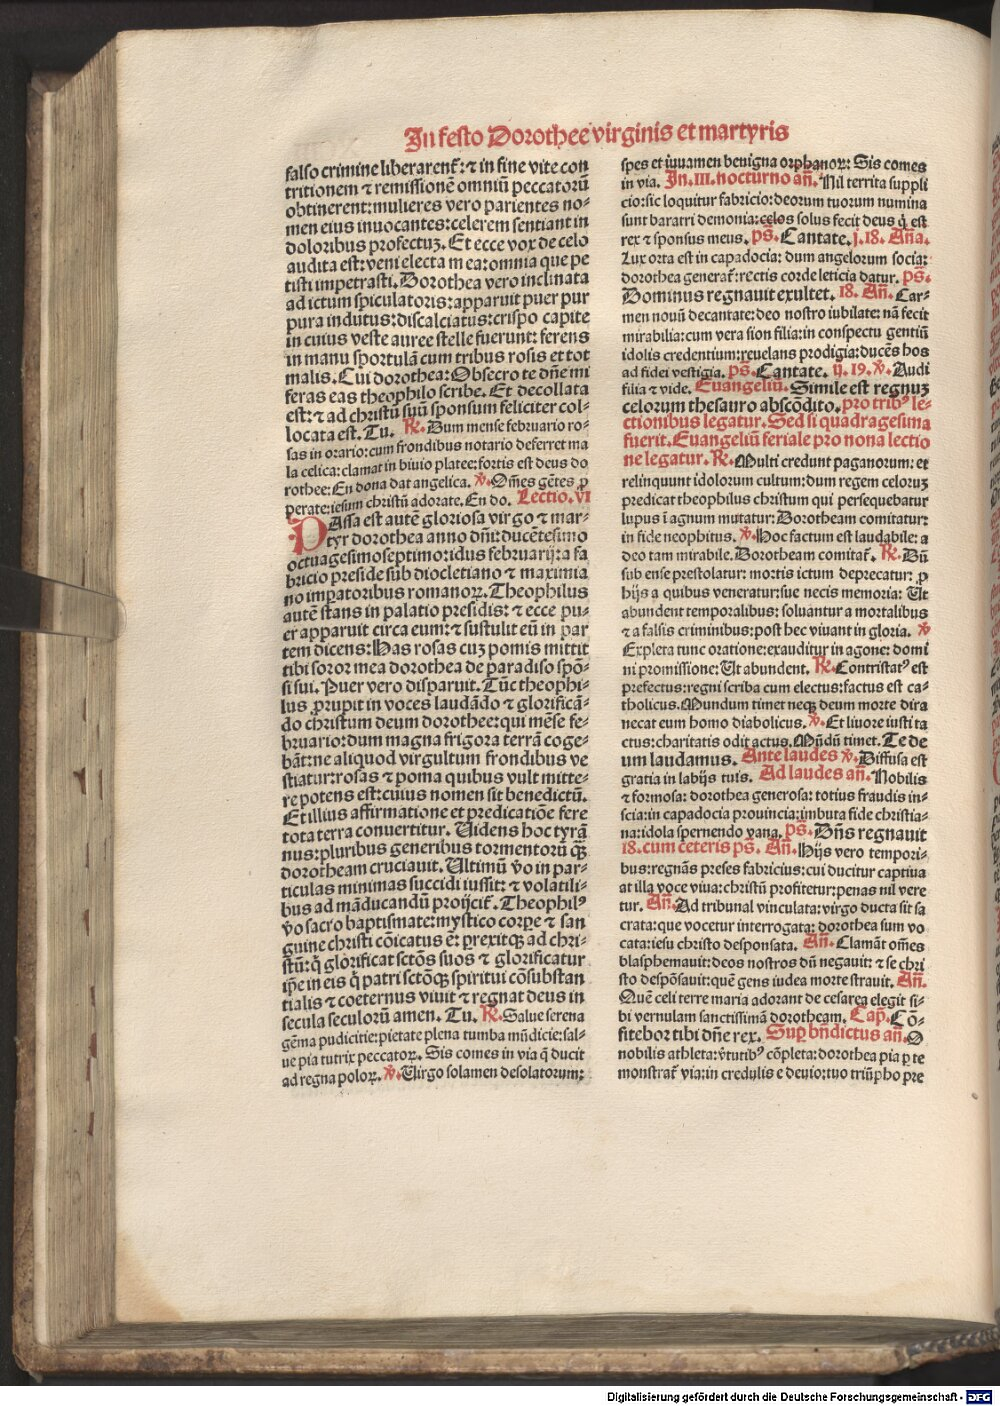 In festo Dorothee virginis et martyris
falso crimine liberarent᷑: ⁊ in fine vite con
tritionem ⁊ remissionē omniū peccatorū
obtinerent: mulieres vero parientes no-
men eius inuocantes: celerem sentiant in
doloribus profectuꝫ. Et ecce vox de celo
audita est: veni electa mea: omnia que pe
tisti impetrasti. Dorothea vero inclinata
ad ictum spiculatoris: apparuit puer pur
pura indutus: discalciatus: crispo capite
in cuius veste auree stelle fuerunt: ferens
in manu sportulā cum tribus rosis et tot
malis. Cui dorothea: Obsecro te dn̄e mi
feras eas theophilo scribe. Et decollata
est: ⁊ ad christū suū sponsum feliciter col-
locata est. Tu. ℟. Dum mense februario ro-
sas in orario: cum frondibus notario deferret ma
la celica: clamat in biuio platee: fortis est deus do
rothee: En dona dat angelica. ℣. Om̄es gētes ꝓ
perate: iesum christū adorate. En do. Lectio. VI
PAssa est autē gloriosa virgo ⁊ mar-
tyr dorothea anno dn̄i: ducētesimo
octuagesimoseptimo: idus februarij: a fa
bricio preside sub diocletiano ⁊ maximia
no imꝑatoribus romanoꝝ. Theophilus
autē stans in palatio presidis: ⁊ ecce pu-
er apparuit circa eum: ⁊ sustulit eū in par
tem dicens: Has rosas cuꝫ pomis mittit
tibi soror mea dorothea de paradiso spō-
si sui. Puer vero disparuit. Tūc theophi-
lus ꝓrupit in voces laudādo ⁊ glorificā-
do christum deum dorothee: qui mēse fe-
bruario: dum magna frigora terrā coge-
bāt: ne aliquod virgultum frondibus ve
stiatur: rosas ⁊ poma quibus vult mitte-
re potens est: cuius nomen sit benedictū.
Et illius affirmatione et predicatiōe fere
tota terra conuertitur. Uidens hoc tyrā
nus: pluribus generibus tormentorū qꝫ
dorotheam cruciauit. Ultimū v̄o in par-
ticulas minimas succidi iussit: ⁊ volatili-
bus ad māducandū proijcit᷑. Theophilꝰ
v̄o sacro baptismate: mystico corꝑe ⁊ san
guine christi cōicatus ē: ꝑrexitqꝫ ad chri-
stū: q̄ glorificat sctōs suos ⁊ glorificatur
ip̄e in eis q̄ patri sctōqꝫ spiritui cōsubstan
tialis ⁊ coeternus viuit ⁊ regnat deus in
secula seculorū amen. Tu. ℟. Salue serena
gēma pudicitie: pietate plena tumba mūdicie: sal-
ue pia tutrix peccatoꝝ. Sis comes in via q̄ ducit
ad regna poloꝝ. ℣. Uirgo solamen desolatorum:
spes et iuuamen benigna orphanoꝝ: Sis comes
in via. In. III. nocturno an̄. Nil territa suppli
cio: sic loquitur fabricio: deorum tuorum numina
sunt baratri demonia: celos solus fecit deus q̄ est
rex ⁊ sponsus meus. ps̄. Cantate. j. 18. An̄a.
Lux orta est in capadocia: dum angelorum socia:
dorothea generat᷑: rectis corde leticia datur. ps̄.
Dominus regnauit exultet. 18. An̄. Car-
men nouū decantate: deo nostro iubilate: nā fecit
mirabilia: cum vera sion filia: in conspectu gentiū
idolis credentium: reuelans prodigia: ducēs hos
ad fidei vestigia. ps̄. Cantate. ij. 19. ℣. Audi
filia ⁊ vide. Euangeliū. Simile est regnuꝫ
celorum thesauro abscōdito. pro tribꝰ le-
ctionibus legatur. Sed si quadragesima
fuerit. Euangeliū feriale pro nona lectio
ne legatur. ℟. Multi credunt paganorum: et
relinquunt idolorum cultum: dum regem celoruꝫ
predicat theophilus christum qui persequebatur
lupus ī agnum mutatur: Dorotheam comitatur:
in fide neophitus. ℣. Hoc factum est laudabile: a
deo tam mirabile. Dorotheam comitat᷑. ℟. Dū
sub ense prestolatur: mortis ictum deprecatur: ꝓ
hijs a quibus veneratur: sue necis memoria: Ut
abundent temporalibus: soluantur a mortalibus
⁊ a falsis criminibus: post hec viuant in gloria. ℣
Expleta tunc oratione: exauditur in agone: domi
ni promissione: Ut abundent. ℟. Contristatꝰ est
prefectus: regni scriba cum electus: factus est ca-
tholicus. Mundum timet neqꝫ deum morte dira
necat eum homo diabolicus. ℣. Et liuore iusti ta
ctus: charitatis odit actus. Mūdū timet. Te de
um laudamus. Ante laudes ℣. Diffusa est
gratia in labijs tuis. Ad laudes an̄. Nobilis
⁊ formosa: dorothea generosa: totius fraudis in-
scia: in capadocia prouincia: imbuta fide christia-
na: idola spernendo vana. ps̄. Dn̄s regnauit
18. cum ceteris ps̄. An̄. Hijs vero tempori-
bus: regnās preses fabricius: cui ducitur captiua
at illa voce viua: christū profitetur: penas nil vere
tur. An̄. Ad tribunal vinculata: virgo ducta sit sa
crata: que vocetur interrogata: dorothea sum vo
cata: iesu christo desponsata. An̄. Clamāt om̄es
blasphemauit: deos nostros dū negauit: ⁊ se chri
sto despōsauit: quē gens iudea morte strauit. An̄.
Quē celi terre maria adorant de cesarea elegit si-
bi vernulam sanctissimā dorotheam. Cap̄. Cō-
fitebor tibi dn̄e rex. Suꝑ bn̄dictus an̄. O
nobilis athleta: v̄tutibꝰ cōpleta: dorothea pia ꝑ te
monstrat᷑ via: in credulis e deuio: tuo triūpho pre
Digitalisierung gefördert durch die Deutsche Forschungsgemeinschaft - DFG